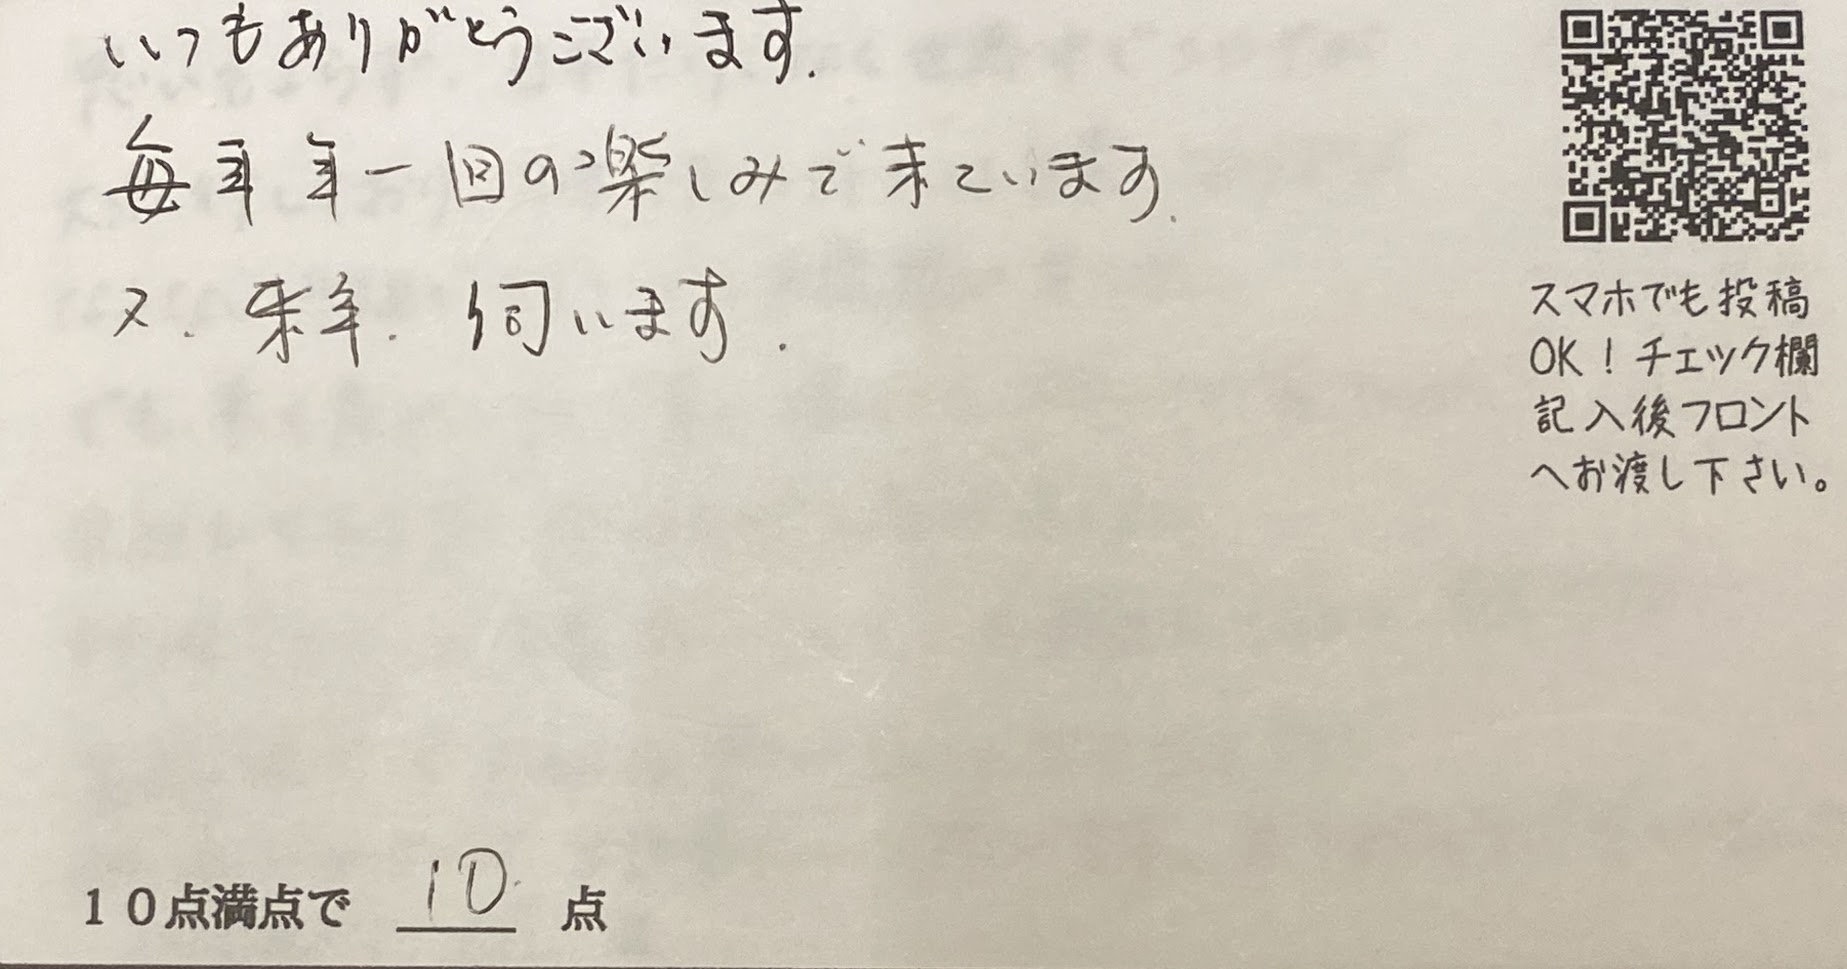 いつもありがとうございます.
毎年年一回の楽しみで来ています.
又. 来年. 伺います.
スマホでも投稿
OK！チェック欄
記入後フロント
へお渡し下さい。
10点満点で 10 点